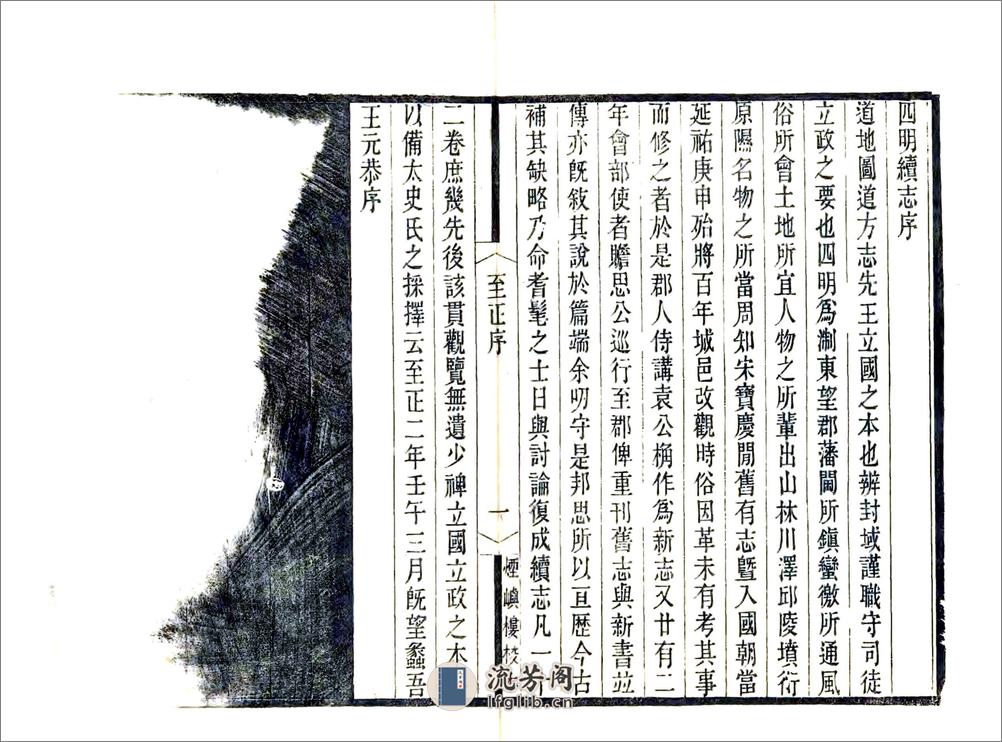 四明續志序
道地圖道方志先王立國之本也辨封域謹職守司徒
立政之要也四明爲淛東望郡藩閫所鎭蠻徼所通風
俗所會土地所宜人物之所輩出山林川澤邱陵墳衍
原隰名物之所當周知宋寶慶閒舊有志曁入國朝當
延祐庚申殆將百年城邑改觀時俗因革未有考其事
而修之者於是郡人侍講袁公桷作爲新志又廿有二
年會部使者贍思公巡行至郡俾重刊舊志與新書竝
傳亦旣敍其說於篇端余叨守是邦思所以亘歷今古
補其缺略乃命耆髦之士日與討論復成續志凡一
至正序
一
煙嶼樓校
二卷庶幾先後該貫觀覽無遺少裨立國立政之本
以備太史氏之採擇云至正二年壬午三月旣望蠡吾
王元恭序
流芳阁
lfglib.cn